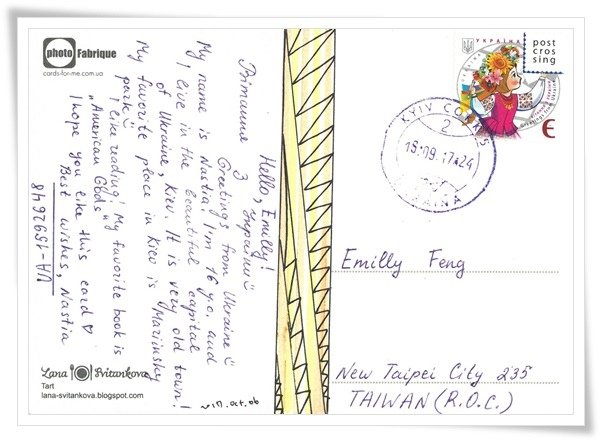 photo Fabrique
cards-for-me.com.ua
Hello, Emilly!
Вітання з України
Greetings from Ukraine
My name is Nastia! I'm 16 y.o. and
I live in the beautiful capital
of Ukraine, Kiev. It is very old town!
My favorite place in Kiev is Mariinsky
park
I like reading! My favorite book is
„American Gods"
I hope you like this card ♡
Best wishes, Nastia
UA-1592648
Lana Svitankova
Tart
lana-svitankova.blogspot.com
УКРАЇНА
post
cros
sing
Є
KYIV
2
UKRAINA
Emilly Feng
New Taipei City 235
TAIWAN (R.O.C.)